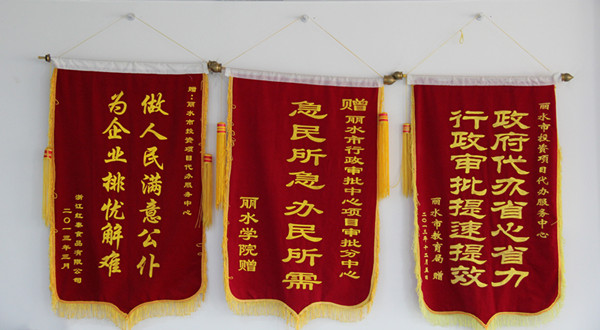 赠:丽水市投资项目代办服务中心
做人民满意公仆
为企业排忧解难
浙江红泰食品有限公司
二〇一三年三月
赠丽水市行政审批中心项目审批分中心
急民所急 办民所需
丽水学院赠
丽水市投资项目代办服务中心
政府代办省心省力
行政审批提速提效
丽水市教育局 赠
二〇一三年十二月五日